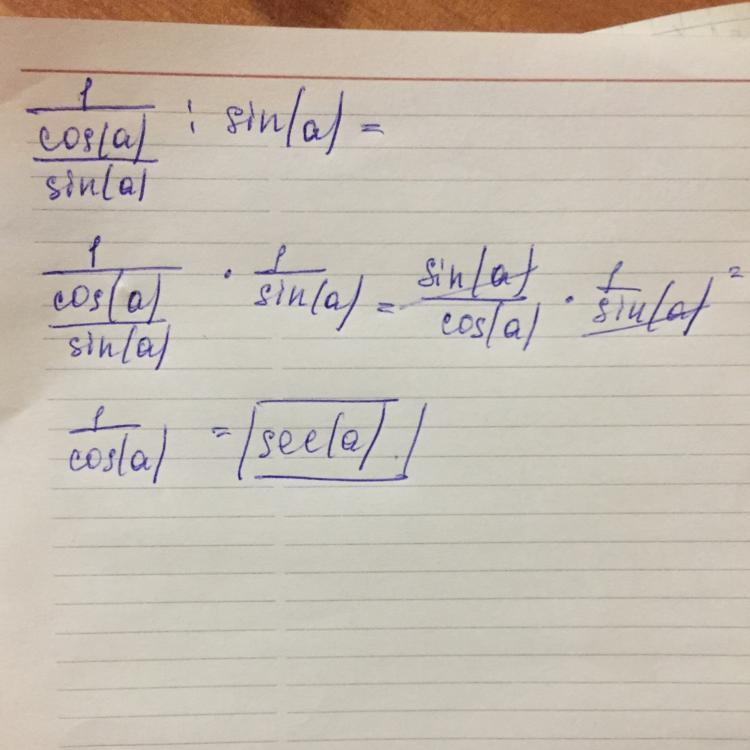 1/(cos(a)/sin(a)) : sin(a) =
1/(cos(a)/sin(a)) · 1/sin(a) = sin(a)/cos(a) · 1/sin(a) =
1/cos(a) = |sec(a).|